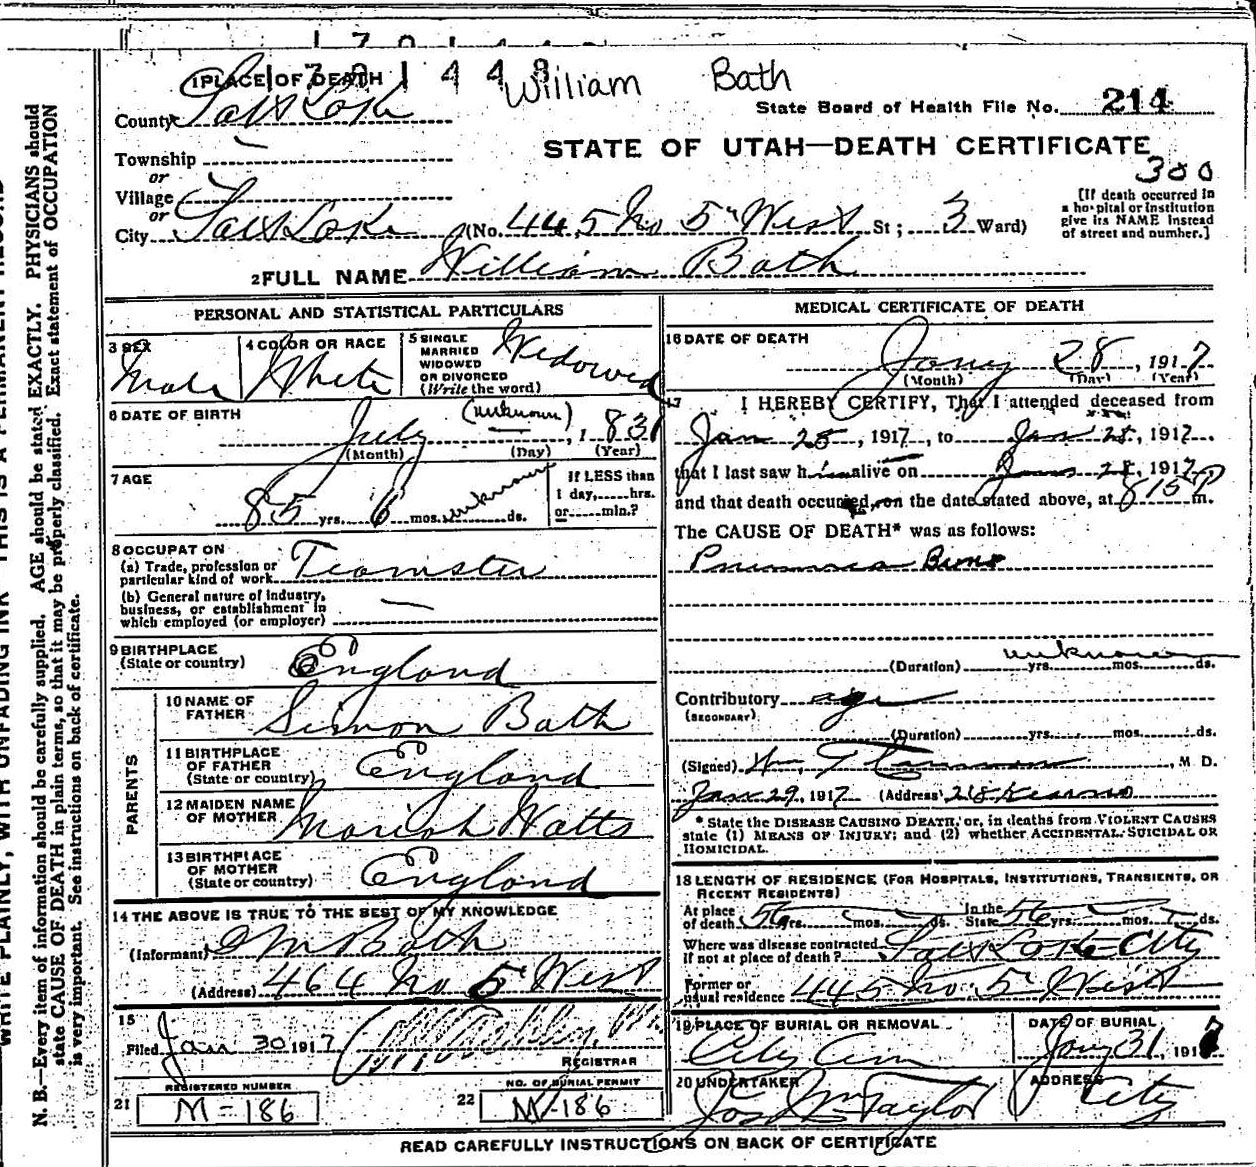 1701448 William Bath
1 PLACE OF DEATH
State Board of Health File No. 214
County Salt Lake
STATE OF UTAH—DEATH CERTIFICATE
Township
or
Village
or
300
[If death occurred in
a hospital or institution
give its NAME instead
of street and number.]
City Salt Lake (No. 445 No 5" West St; 3 Ward)
2 FULL NAME William Bath
PERSONAL AND STATISTICAL PARTICULARS
3 SEX Male
4 COLOR OR RACE White
5 SINGLE
MARRIED
WIDOWED
OR DIVORCED
(Write the word) Widowed
6 DATE OF BIRTH July (unknown), 1831
(Month) (Day) (Year)
7 AGE 85 yrs. 6 mos. unknown ds.
If LESS than
1 day, hrs.
or min.?
8 OCCUPATION
(a) Trade, profession or
particular kind of work Teamster
(b) General nature of industry,
business, or establishment in
which employed (or employer) —
9 BIRTHPLACE
(State or country) England
PARENTS
10 NAME OF
FATHER Simon Bath
11 BIRTHPLACE
OF FATHER
(State or country) England
12 MAIDEN NAME
OF MOTHER Mariah Watts
13 BIRTHPLACE
OF MOTHER
(State or country) England
14 THE ABOVE IS TRUE TO THE BEST OF MY KNOWLEDGE
(Informant) Bath
(Address) 464 No 5 West
15
Filed Jan 30 1917
REGISTRAR
REGISTERED NUMBER
21 M-186
NO. OF BURIAL PERMIT
22 M-186
MEDICAL CERTIFICATE OF DEATH
16 DATE OF DEATH
Jany 28, 1917
(Month) (Day) (Year)
17 I HEREBY CERTIFY, That I attended deceased from
Jan 25, 1917, to Jan 28, 1917
that I last saw him alive on Jan 28, 1917
and that death occurred, on the date stated above, at 8 15 P m.
The CAUSE OF DEATH* was as follows:
(Duration) unknown yrs. mos. ds.
Contributory age
(SECONDARY)
(Duration) yrs. mos. ds.
(Signed) Wm, M. D.
Jan 29, 1917 (Address) 218 Kearns
* State the DISEASE CAUSING DEATH, or, in deaths from VIOLENT CAUSES
state (1) MEANS OF INJURY; and (2) whether ACCIDENTAL, SUICIDAL OR
HOMICIDAL.
18 LENGTH OF RESIDENCE (FOR HOSPITALS, INSTITUTIONS, TRANSIENTS, OR
RECENT RESIDENTS)
At place
of death 56 yrs. mos. ds. In the
State 56 yrs. mos. ds.
Where was disease contracted
if not at place of death? Salt Lake City
Former or
usual residence 445 No 5" West
19 PLACE OF BURIAL OR REMOVAL City Cem
DATE OF BURIAL Jany 31, 1917
20 UNDERTAKER Jos Wm Taylor
ADDRESS City
READ CAREFULLY INSTRUCTIONS ON BACK OF CERTIFICATE
WRITE PLAINLY, WITH UNFADING INK—THIS IS A PERMANENT RECORD
N. B.—Every item of information should be carefully supplied. AGE should be stated EXACTLY. PHYSICIANS should
state CAUSE OF DEATH in plain terms, so that it may be properly classified. Exact statement of OCCUPATION
is very important. See instructions on back of certificate.